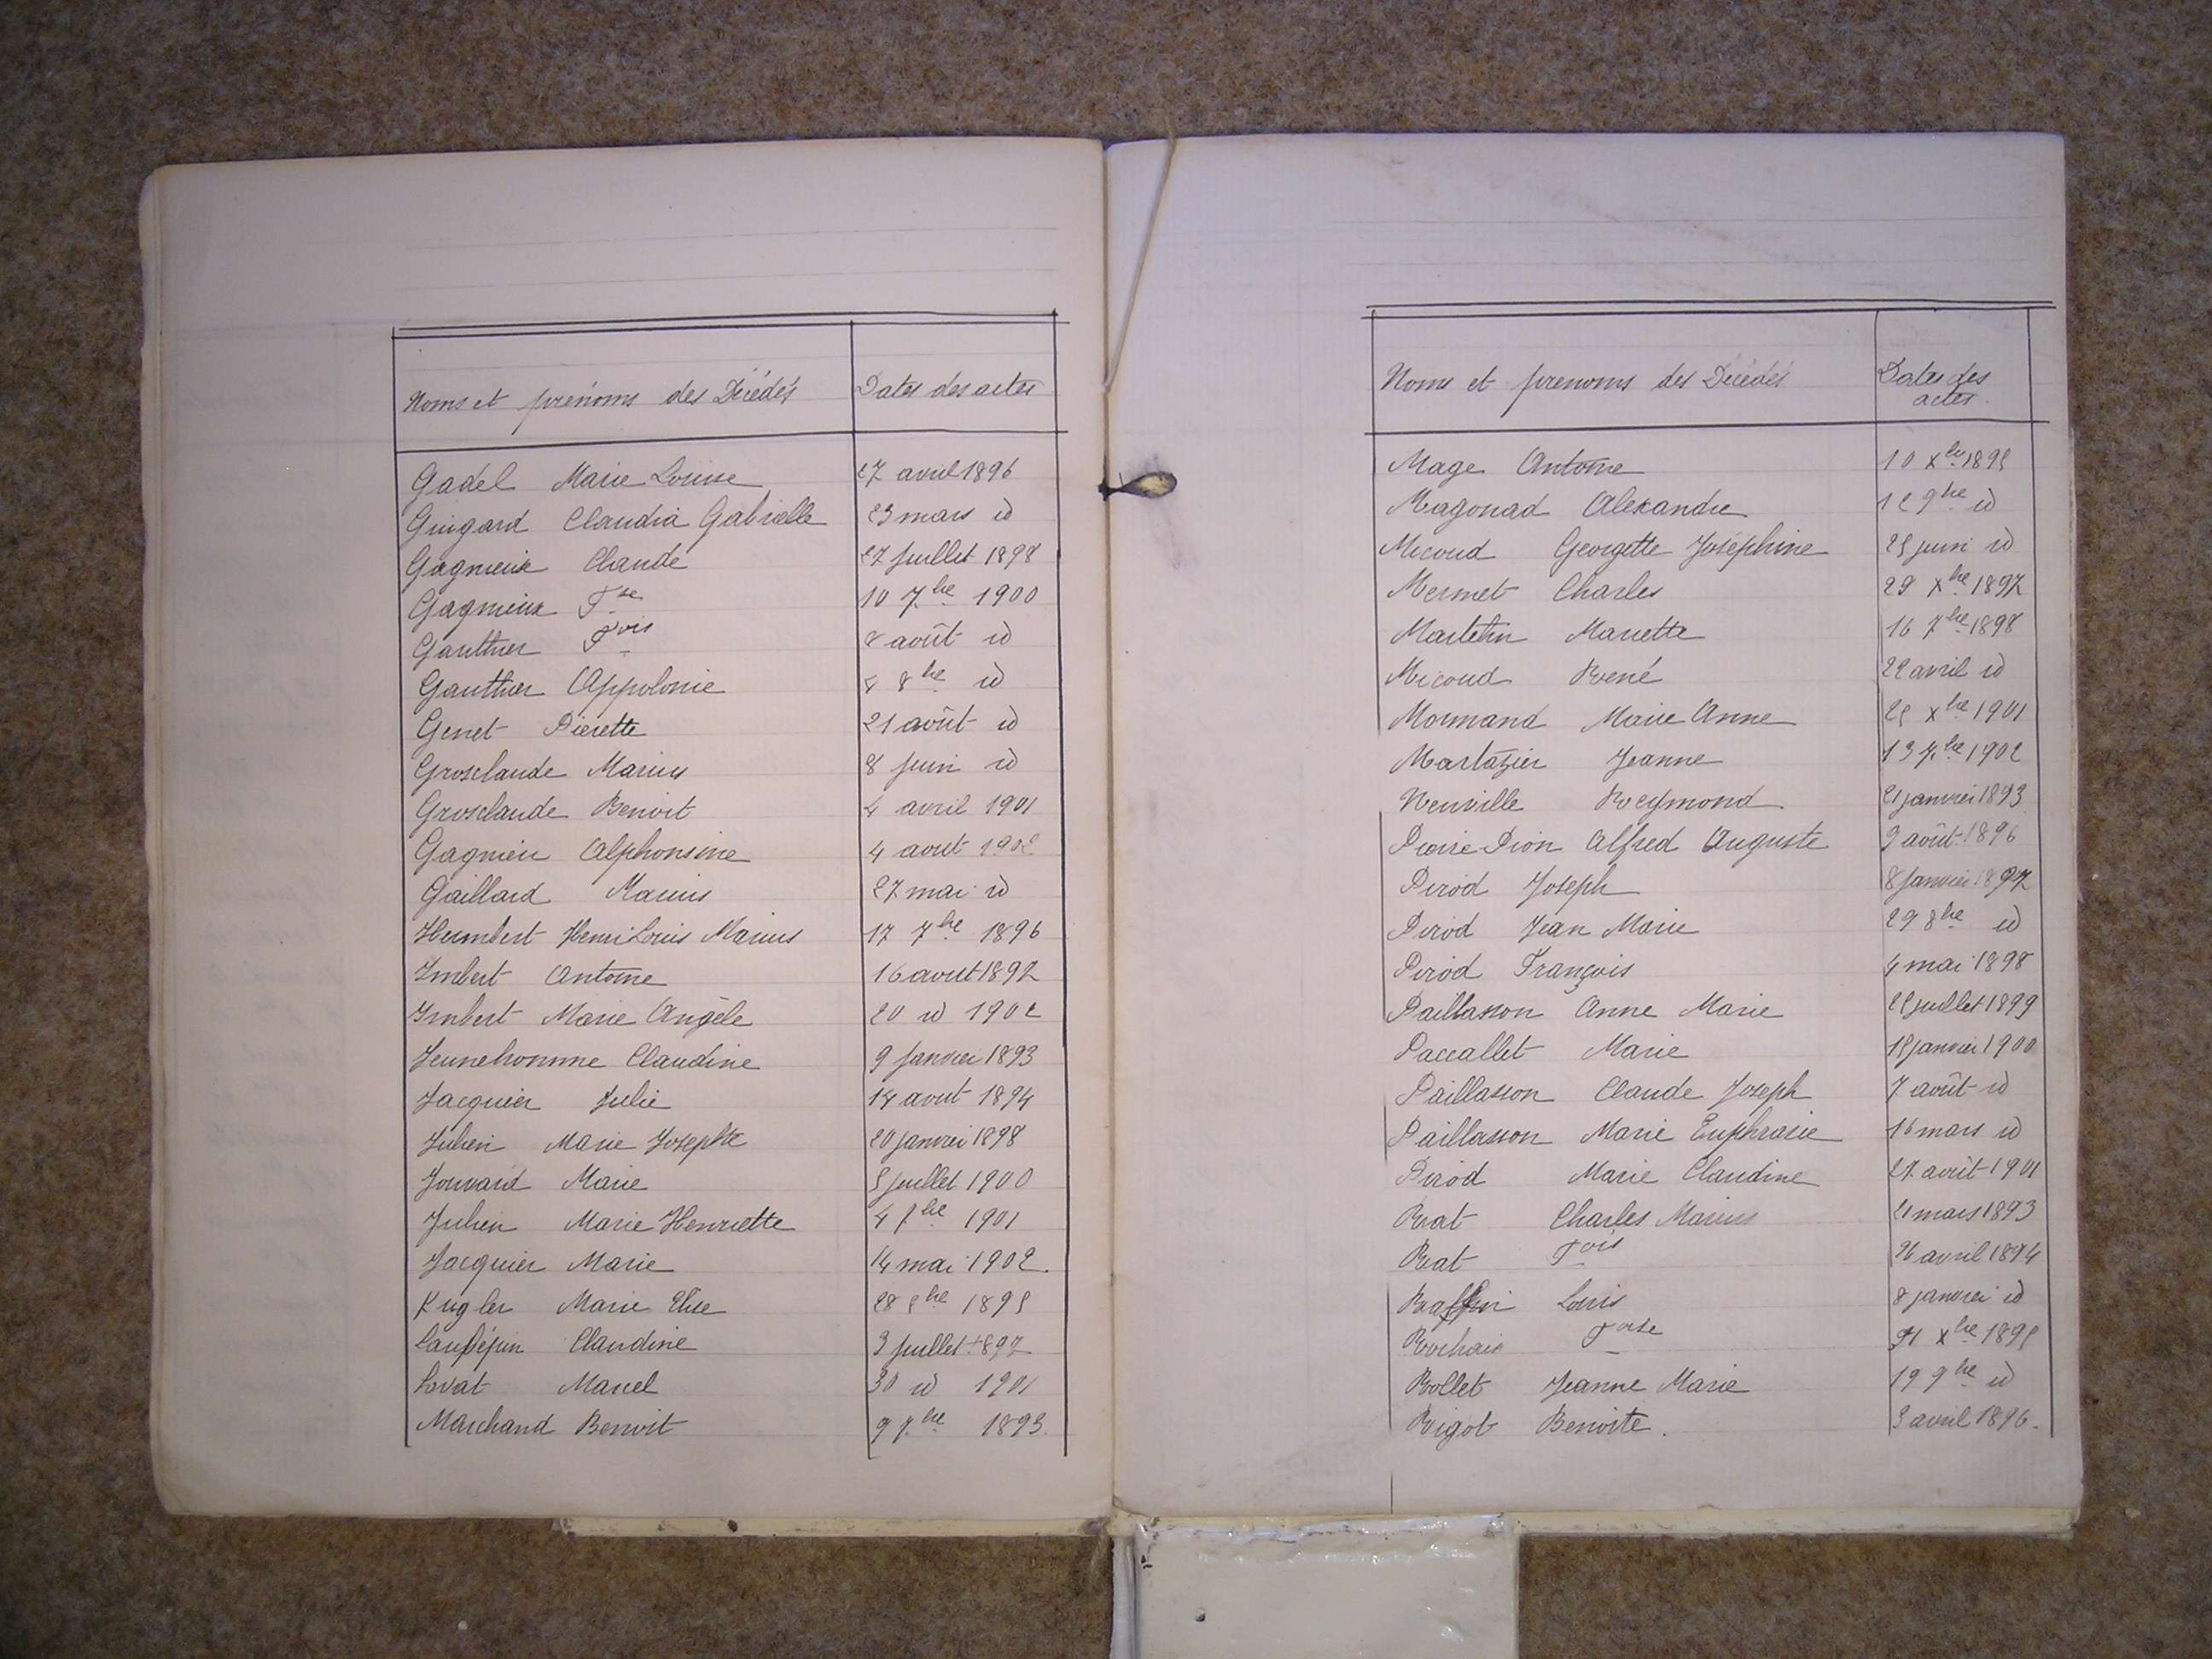 Noms et prénoms des Décédés Dates des actes
Gadel Marie Louise 27 avril 1896
Guigard Claudia Gabrielle 23 mars id
Gagnieux Claude 27 Juillet 1898
Gagnieux Fse 10 7bre 1900
Gauthier Fois 8 août id
Gauthier Appolonie 8bre id
Genet Pierette 21 août id
Grosclaude Marius 8 juin id
Grosclaude Benoit 4 avril 1901
Gagnieu Alphonsine 4 aout 1902
Gaillard Marius 27 mai id
Humbert Henri Louis Marius 17 7bre 1896
Imbert Antoine 16 aout 1897
Imbert Marie Angèle 20 id 1902
Jeunehomme Claudine 9 Janvier 1893
Jacquier Julie 14 aout 1894
Julien Marie Josephte 20 janvier 1898
Jouvard Marie 5 juillet 1900
Julien Marie Henriette 4 1901
Jacquier Marie 14 mai 1902.
Kugler Marie Elise 28 1895
Claudine 3 Juillet 1897
Lovat Marcel 30 id 1901
Marchand Benoit 9 7bre 1893.
Noms et prenoms des Décédés Dates des
actes.
Mage Antoine 10 Xbre 1895
Magonad Alexandre 12 9bre id
Micoud Georgette Joséphine 25 juin id
Mermet Charles 29 Xbre 1897
Martelin Mariette 16 7bre 1898
Micoud René 22 avril id
Mormand Marie Anne 25 Xbre 1901
Martazier Jeanne 13 7bre 1902
Neuville Reymond 21 janvier 1893
Pion Alfred Auguste 9 août 1896
Pirod Joseph 8 Janvier 1897
Pirod Jean Marie 29 8bre id
Pirod François 4 mai 1898
Paillasson Anne Marie 25 juillet 1899
Paccallet Marie 15 janvier 1900
Paillasson Claude Joseph 7 août id
Paillasson Marie Euphrasie 16 mars id
Pirod Marie Claudine 27 août 1901
Rat Charles Marius 21 mars 1893
Rat Fois 26 avril 1894
Raffin Louis 8 janvier id
Rochaix Foise 31 Xbre 1895
Rollet Jeanne Marie 19 9bre id
Rigot Benoite. 3 avril 1896.